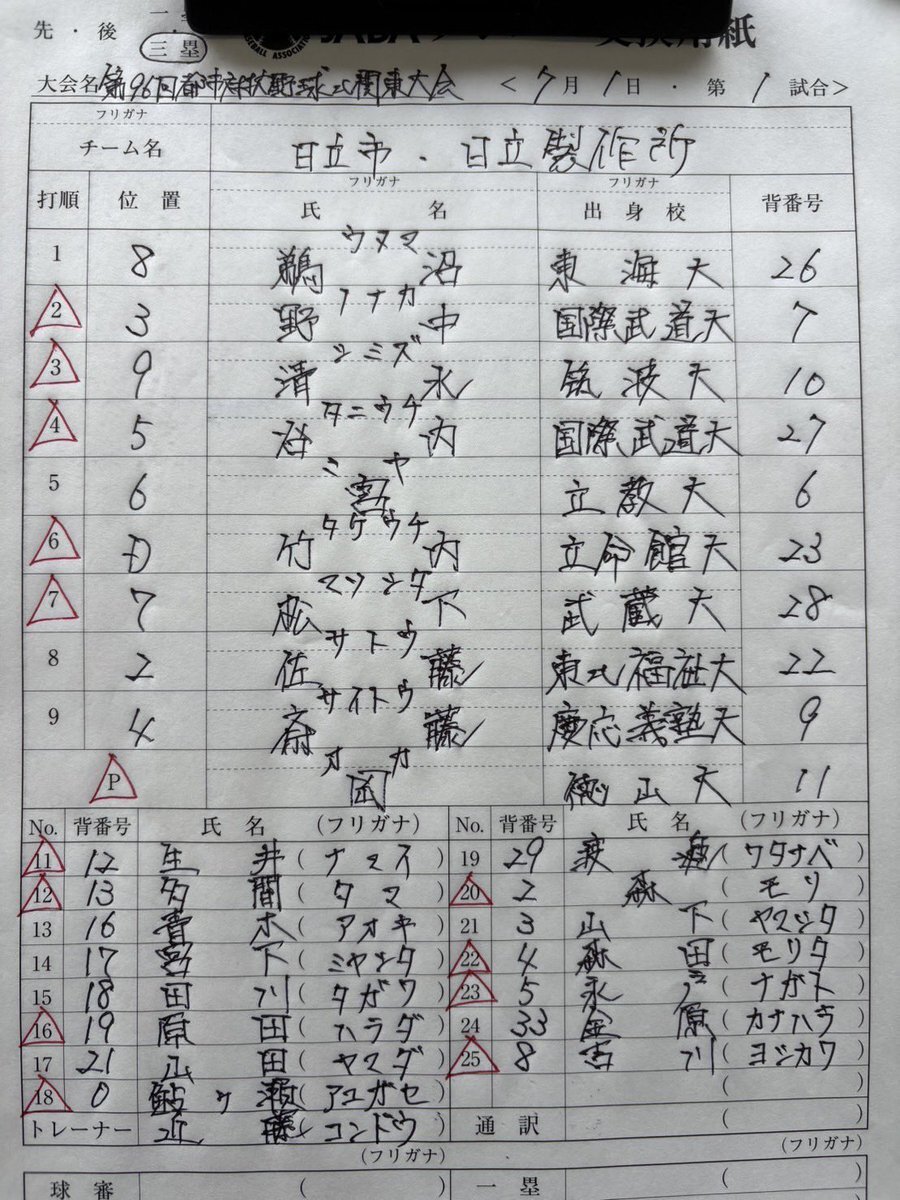 先 ・ 後
三 塁
BASEBALL ASSOCIATION
JABA
交換用紙
大会名 第96回都市対抗野球北関東大会 <7月1日・第1試合>
フリガナ
チーム名 日立市・日立製作所
打順 位置 フリガナ 氏名 フリガナ 出身校 背番号
ウヌマ
1 8 鵜沼 東海大 26
ノナカ
2 3 野中 国際武道大 7
シミズ
3 9 清水 筑波大 10
タニウチ
4 5 谷内 国際武道大 27
ミヤ
5 6 宮 立教大 6
タケウチ
6 D 竹内 立命館大 23
マツシタ
7 7 松下 武蔵大 28
サトウ
8 2 佐藤 東北福祉大 22
サイトウ
9 4 斎藤 慶応義塾大 9
オカ
P 岡 徳山大 11
No. 背番号 氏名 (フリガナ) No. 背番号 氏名 (フリガナ)
11 12 生井 (ナマイ) 19 29 渡邉 (ワタナベ)
12 13 多間 (タマ) 20 2 森 (モリ)
13 16 青木 (アオキ) 21 3 山下 (ヤマシタ)
14 17 宮下 (ミヤシタ) 22 4 森田 (モリタ)
15 18 田川 (タガワ) 23 5 永戸 (ナガト)
16 19 原田 (ハラダ) 24 33 金原 (カナハラ)
17 21 山田 (ヤマダ) 25 8 吉川 (ヨシカワ)
18 0 鮎ヶ瀬 (アユガセ) ( )
トレーナー 近藤 (コンドウ) 通訳 ( )
(フリガナ) (フリガナ)
球審 ( ) 一塁 ( )